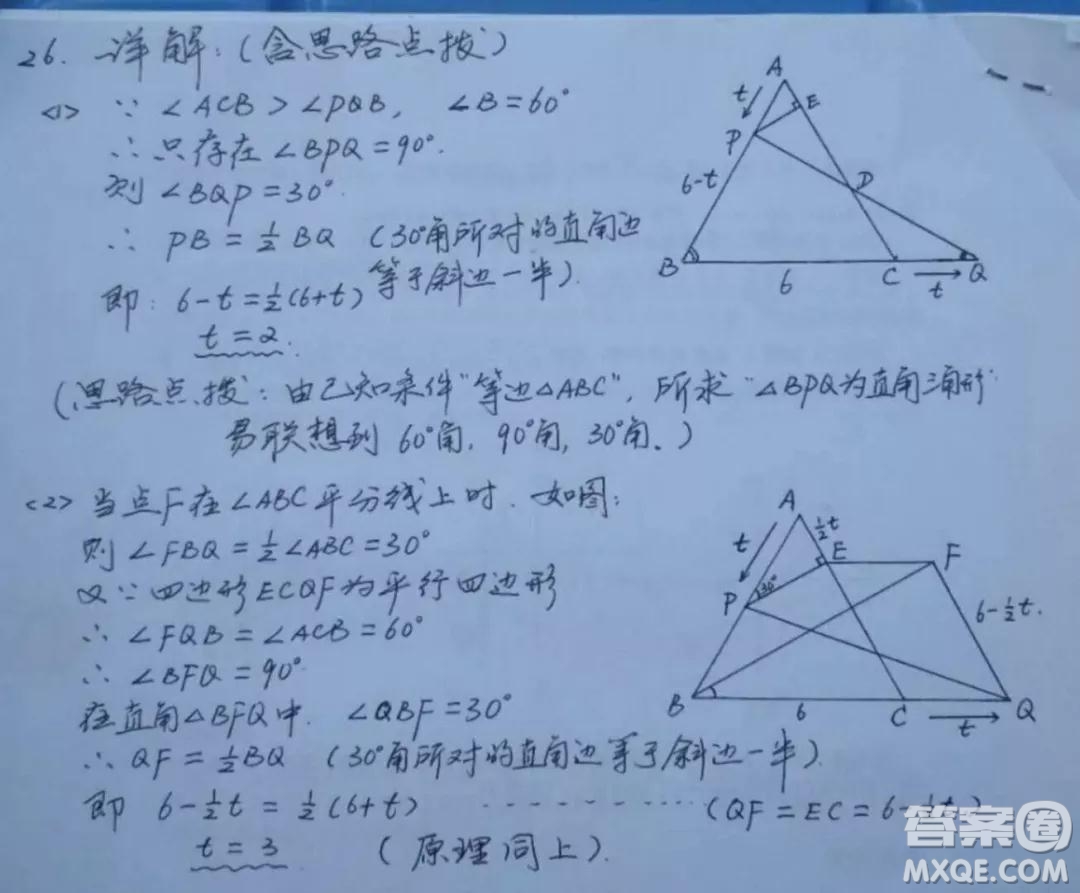 26. 详解:(含思路点拨)
<1> ∵ ∠ACB > ∠PQB, ∠B = 60°
∴ 只存在 ∠BPQ = 90°.
则 ∠BQP = 30°.
∴ PB = ½ BQ (30°角所对的直角边
等于斜边一半).
即: 6-t = ½(6+t)
t = 2.
A
t
E
P
6-t
D
B
6
C
t
Q
(思路点拨: 由已知条件"等边△ABC", 所求"△BPQ为直角三角形"
易联想到 60°角, 90°角, 30°角.)
<2> 当点F在∠ABC平分线上时. 如图:
则 ∠FBQ = ½∠ABC = 30°
又∵四边形ECQF为平行四边形
∴ ∠FQB = ∠ACB = 60°
∴ ∠BFQ = 90°
在直角△BFQ中. ∠QBF = 30°
∴ QF = ½BQ (30°角所对的直角边等于斜边一半).
即 6-½t = ½(6+t) ············ (QF = EC = 6-½t)
t = 3 (原理同上).
A
½t
t
E
F
30°
P
6-½t.
B
6
C
t
Q
答案圈
MXQE.COM